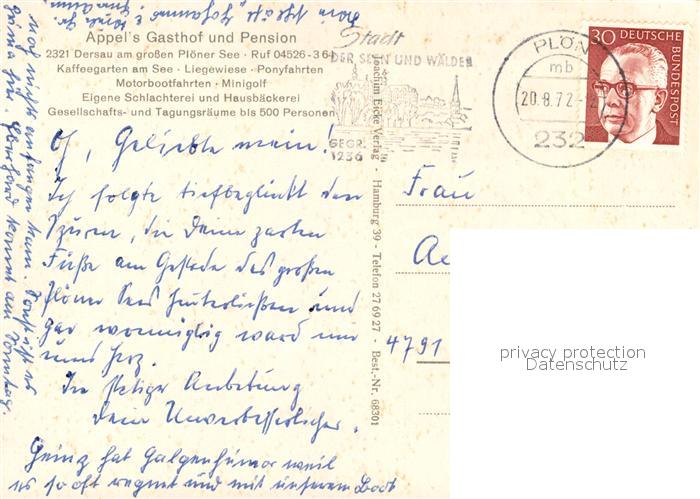 Appel's Gasthof und Pension
2321 Dersau am großen Plöner See · Ruf 04526-364
Kaffeegarten am See · Liegewiese · Ponyfahrten
Motorbootfahrten · Minigolf
Eigene Schlachterei und Hausbäckerei
Gesellschafts- und Tagungsräume bis 500 Personen
Stadt
DER SEEN UND WÄLDER
GEGR.
1236
PLÖN
mb
20.8.72
232
30 DEUTSCHE
BUNDESPOST
Oh, Geliebte mein!
Ich folgte tiefbeglückt den
Spuren, die Deine zarten
Füße am Gestade des großen
Plöner Sees hinterließen und
gar wonniglig ward mir
ums Herz.
In stetiger Anbetung
Dein Unverbesserlicher.
Heinz hat Galgenhumor weil
es so oft regnet und mit unserem Boot
noch nichts anfangen kann. Sonst ist es
prima hier. Eberhard kommt am Sonntag.
Joachim Eicke Verlag - Hamburg 39 - Telefon 27 69 27 - Best.-Nr. 68301
Frau
4791
privacy protection
Datenschutz